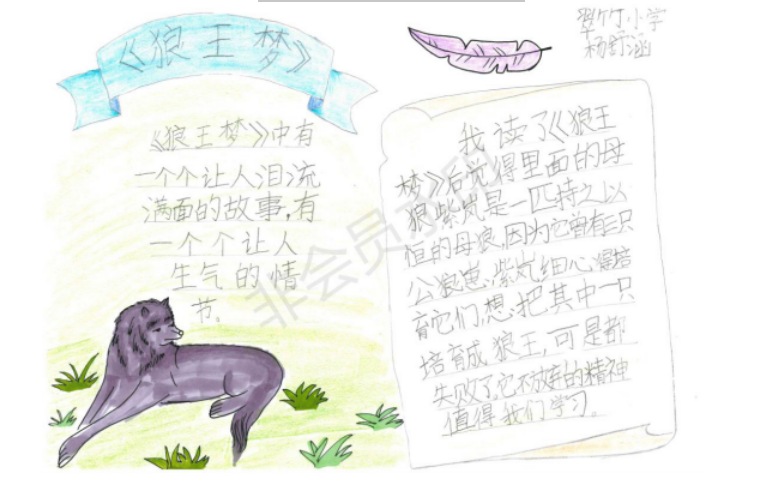 《狼王梦》
翠竹小学
杨舒涵
《狼王梦》中有
一个个让人泪流
满面的故事,有
一个个让人
生气的情
节。
我读了《狼王
梦》后觉得里面的母
狼紫岚是一匹持之以
恒的母狼,因为它曾有三只
公狼崽,紫岚细心得培
育它们,想把其中一只
培育成狼王,可是都
失败了,它不放连的精神
值得我们学习。
非会员水印